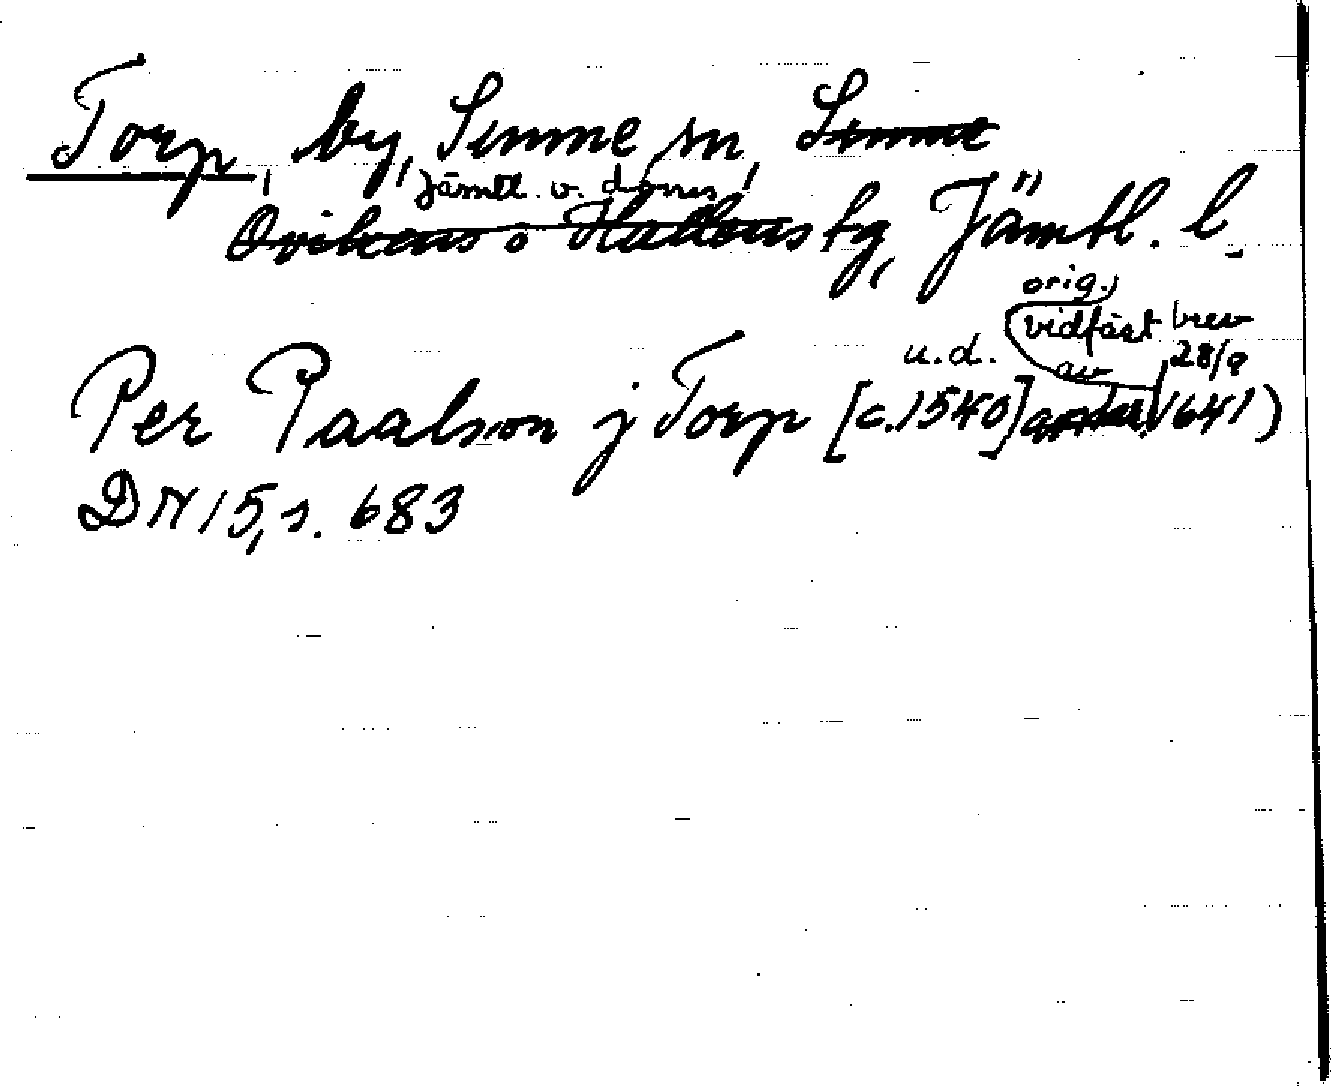 Torp, by, Sunne sn, Sunne
Jämtl. v. doms
Ovikens o Hallens tg, Jämtl. l.
orig.,
vidfäst brev
u.d. av 28/9
Per Paalsson j Torp [c. 1540] 1641)
DN 15, s. 683